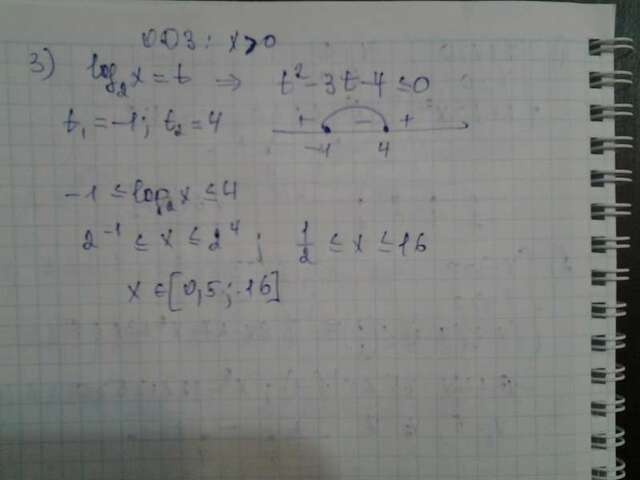 ОДЗ: x>0
3) log₂x = t ⇒ t² - 3t - 4 ≤ 0
t₁ = -1; t₂ = 4
+ - +
-1 4
-1 ≤ log₂x ≤ 4
2⁻¹ ≤ x ≤ 2⁴ ; 1/2 ≤ x ≤ 16
x ∈ [0,5; 16]